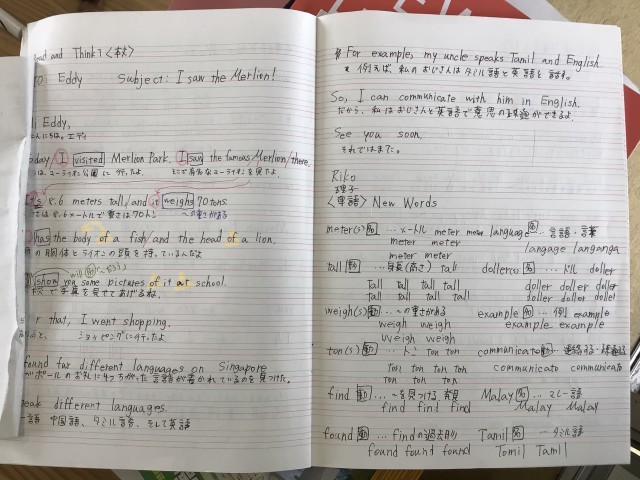 and Think 1 〈本文〉
Eddy Subject: I saw the Merlion!
Eddy,
エディ
I visited Merlion Park. I saw the famous Merlion / there.
マーライオン公園に行ったよ。そこで有名なマーライオンを見たよ。
8.6 meters tall / and it weighs 70 tons.
8.6メートルで重さは70トン 〜の重さがある
has the body of a fish / and the head of a lion.
の胴体とライオンの頭を持っているんだよ
will
show you some pictures of it at school.
で写真を見せてあげるね。
that, I went shopping.
ショッピングに行ったよ。
found far different languages on Singapore
speak different languages.
中国語、タミル語、そして英語
For example, my uncle speaks Tamil and English.
例えば、私のおじさんはタミル語と英語を話す。
So, I can communicate with him in English.
だから、私はおじさんと英語で意思の疎通ができるよ。
See you soon.
それではまた。
Riko
理子
〈単語〉 New Words
meter(s) 名 … メートル meter meter language 名 … 言語・言葉
meter meter langage langanga
meter meter
tall 形 … 身長(高さ) tall doller(s) 名 … ドル doller
Tall tall tall tall doller doller doller
Tall tall tall tall doller doller doller
weigh(s) 動 … 〜の重さがある example 名 … 例 example
weigh weigh example example
weigh weigh
ton(s) 名 … トン ton ton communicate 動 … 連絡する・
ton ton ton ton communicato communicato
ton ton ton
find 動 … を見つける Malay 名 … マレー語
find find find Malay Malay
found 動 … findの過去形 Tamil 名 … タミル語
found found found Tomil Tamil